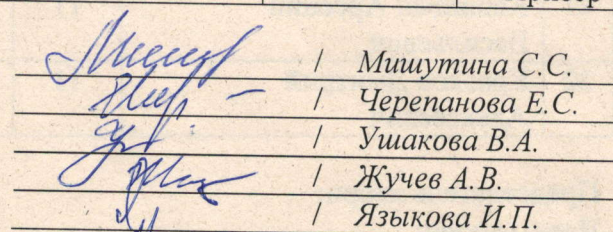 / Мишутина С.С.
/ Черепанова Е.С.
/ Ушакова В.А.
/ Жучев А.В.
/ Языкова И.П.